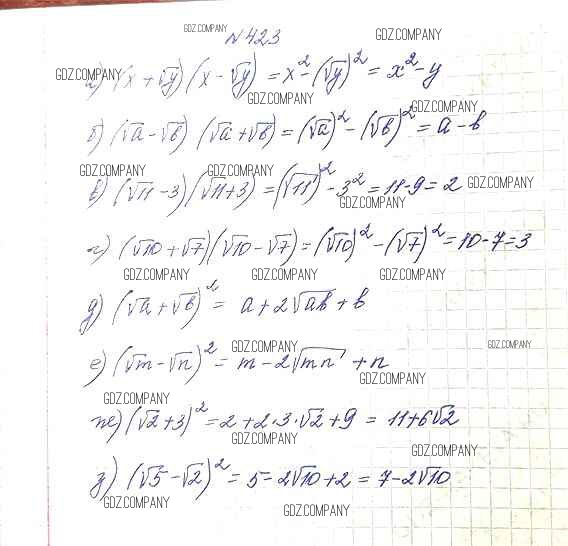 GDZ.COMPANY
№423
GDZ.COMPANY
GDZ.COMPANY
а) (x + √y)(x - √y) = x² - (√y)² = x² - y
GDZ.COMPANY
GDZ.COMPANY
б) (√a - √b)(√a + √b) = (√a)² - (√b)² = a - b
GDZ.COMPANY
GDZ.COMPANY
GDZ.COMPANY
в) (√11 - 3)(√11 + 3) = (√11)² - 3² = 11 - 9 = 2
GDZ.COMPANY
г) (√10 + √7)(√10 - √7) = (√10)² - (√7)² = 10 - 7 = 3
GDZ.COMPANY
GDZ.COMPANY
GDZ.COMPANY
д) (√a + √b)² = a + 2√ab + b
GDZ.COMPANY
GDZ.COMPANY
е) (√m - √n)² = m - 2√mn + n
GDZ.COMPANY
GDZ.COMPANY
ж) (√2 + 3)² = 2 + 2·3·√2 + 9 = 11 + 6√2
GDZ.COMPANY
GDZ.COMPANY
з) (√5 - √2)² = 5 - 2√10 + 2 = 7 - 2√10
GDZ.COMPANY
GDZ.COMPANY